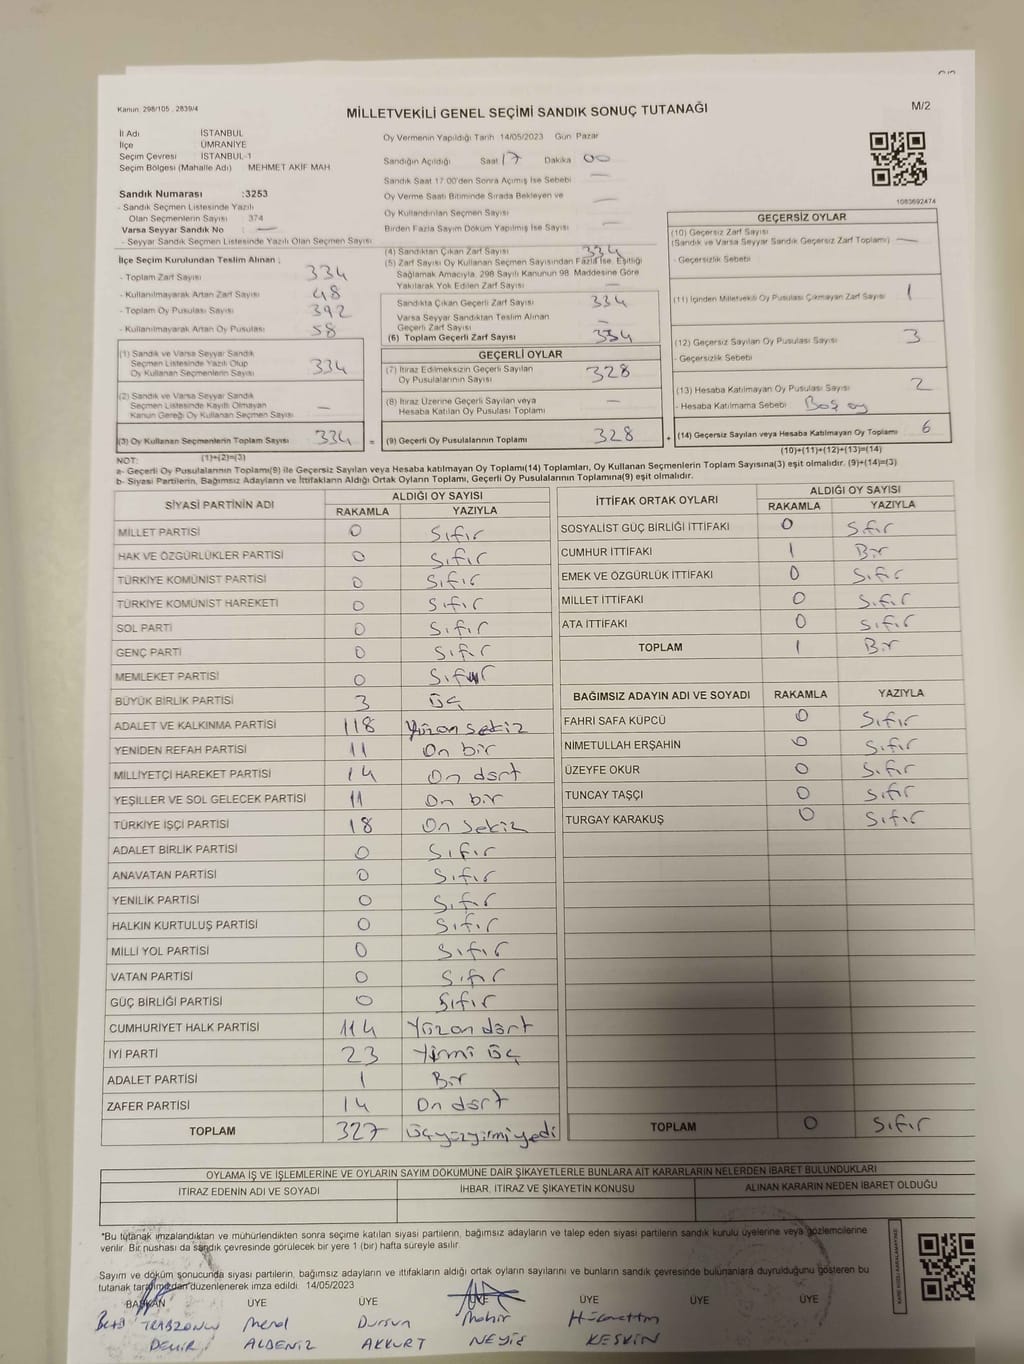 Kanun. 298/105 . 2839/4
MİLLETVEKİLİ GENEL SEÇİMİ SANDIK SONUÇ TUTANAĞI
M/2
İl Adı İSTANBUL
İlçe ÜMRANİYE
Seçim Çevresi İSTANBUL-1
Seçim Bölgesi (Mahalle Adı) MEHMET AKİF MAH
Sandık Numarası :3253
- Sandık Seçmen Listesinde Yazılı
Olan Seçmenlerin Sayısı 374
Varsa Seyyar Sandık No : —
- Seyyar Sandık Seçmen Listesinde Yazılı Olan Seçmen Sayısı
Oy Vermenin Yapıldığı Tarih 14/05/2023 Gün Pazar
Sandığın Açıldığı Saat 17 Dakika 00
Sandık Saat 17 00'den Sonra Açımış İse Sebebi —
Oy Verme Saati Bitiminde Sırada Bekleyen ve
Oy Kullandırılan Seçmen Sayısı —
Birden Fazla Sayım Döküm Yapılmış İse Sayısı —
1083692474
İlçe Seçim Kurulundan Teslim Alınan ;
- Toplam Zarf Sayısı 334
- Kullanılmayarak Artan Zarf Sayısı 48
- Toplam Oy Pusulası Sayısı 392
- Kullanılmayarak Artan Oy Pusulası 58
(1) Sandık ve Varsa Seyyar Sandık
Seçmen Listesinde Yazılı Olup
Oy Kullanan Seçmenlerin Sayısı 334
(2) Sandık ve Varsa Seyyar Sandık
Seçmen Listesinde Kayıtlı Olmayan
Kanun Gereği Oy Kullanan Seçmen Sayısı —
(3) Oy Kullanan Seçmenlerin Toplam Sayısı 334 =
(1)+(2)=(3)
(4) Sandıktan Çıkan Zarf Sayısı 334
(5) Zarf Sayısı Oy Kullanan Seçmen Sayısından Fazla İse, Eşitliği
Sağlamak Amacıyla, 298 Sayılı Kanunun 98. Maddesine Göre
Yakılarak Yok Edilen Zarf Sayısı —
Sandıkta Çıkan Geçerli Zarf Sayısı 334
Varsa Seyyar Sandıktan Teslim Alınan
Geçerli Zarf Sayısı —
(6) Toplam Geçerli Zarf Sayısı 334
GEÇERLİ OYLAR
(7) İtiraz Edilmeksizin Geçerli Sayılan
Oy Pusulalarının Sayısı 328
(8) İtiraz Üzerine Geçerli Sayılan veya
Hesaba Katılan Oy Pusulası Toplamı —
(9) Geçerli Oy Pusulalarının Toplamı 328 +
GEÇERSİZ OYLAR
(10) Geçersiz Zarf Sayısı
(Sandık ve Varsa Seyyar Sandık Geçersiz Zarf Toplamı) —
- Geçersizlik Sebebi
(11) İçinden Milletvekili Oy Pusulası Çıkmayan Zarf Sayısı 1
(12) Geçersiz Sayılan Oy Pusulası Sayısı 3
- Geçersizlik Sebebi
(13) Hesaba Katılmayan Oy Pusulası Sayısı 2
- Hesaba Katılmama Sebebi Boş oy
(14) Geçersiz Sayılan veya Hesaba Katılmayan Oy Toplamı 6
(10)+(11)+(12)+(13)=(14)
NOT:
a- Geçerli Oy Pusulalarının Toplamı(9) ile Geçersiz Sayılan veya Hesaba katılmayan Oy Toplamı(14) Toplamları, Oy Kullanan Seçmenlerin Toplam Sayısına(3) eşit olmalıdır. (9)+(14)=(3)
b- Siyasi Partilerin, Bağımsız Adayların ve İttifakların Aldığı Ortak Oyların Toplamı, Geçerli Oy Pusulalarının Toplamına(9) eşit olmalıdır.
SİYASİ PARTİNİN ADI ALDIĞI OY SAYISI
RAKAMLA YAZIYLA
MİLLET PARTİSİ 0 Sıfır
HAK VE ÖZGÜRLÜKLER PARTİSİ 0 Sıfır
TÜRKİYE KOMÜNİST PARTİSİ 0 Sıfır
TÜRKİYE KOMÜNİST HAREKETİ 0 Sıfır
SOL PARTİ 0 Sıfır
GENÇ PARTİ 0 Sıfır
MEMLEKET PARTİSİ 0 Sıfır
BÜYÜK BİRLİK PARTİSİ 3 Üç
ADALET VE KALKINMA PARTİSİ 118 Yüzon sekiz
YENİDEN REFAH PARTİSİ 11 On bir
MİLLİYETÇİ HAREKET PARTİSİ 14 On dört
YEŞİLLER VE SOL GELECEK PARTİSİ 11 On bir
TÜRKİYE İŞÇİ PARTİSİ 18 On Sekiz
ADALET BİRLİK PARTİSİ 0 Sıfır
ANAVATAN PARTİSİ 0 Sıfır
YENİLİK PARTİSİ 0 Sıfır
HALKIN KURTULUŞ PARTİSİ 0 Sıfır
MİLLİ YOL PARTİSİ 0 Sıfır
VATAN PARTİSİ 0 Sıfır
GÜÇ BİRLİĞİ PARTİSİ 0 Sıfır
CUMHURİYET HALK PARTİSİ 114 Yüzon dört
İYİ PARTİ 23 Yirmi üç
ADALET PARTİSİ 1 Bir
ZAFER PARTİSİ 14 On dört
TOPLAM 327 Üçyüzyirmiyedi
İTTİFAK ORTAK OYLARI ALDIĞI OY SAYISI
RAKAMLA YAZIYLA
SOSYALİST GÜÇ BİRLİĞİ İTTİFAKI 0 Sıfır
CUMHUR İTTİFAKI 1 Bir
EMEK VE ÖZGÜRLÜK İTTİFAKI 0 Sıfır
MİLLET İTTİFAKI 0 Sıfır
ATA İTTİFAKI 0 Sıfır
TOPLAM 1 Bir
BAĞIMSIZ ADAYIN ADI VE SOYADI RAKAMLA YAZIYLA
FAHRİ SAFA KÜPCÜ 0 Sıfır
NİMETULLAH ERŞAHİN 0 Sıfır
ÜZEYFE OKUR 0 Sıfır
TUNCAY TAŞÇI 0 Sıfır
TURGAY KARAKUŞ 0 Sıfır
TOPLAM 0 Sıfır
OYLAMA İŞ VE İŞLEMLERİNE VE OYLARIN SAYIM DÖKÜMÜNE DAİR ŞİKAYETLERLE BUNLARA AİT KARARLARIN NELERDEN İBARET BULUNDUKLARI
İTİRAZ EDENİN ADI VE SOYADI İHBAR, İTİRAZ VE ŞİKAYETİN KONUSU ALINAN KARARIN NEDEN İBARET OLDUĞU
*Bu tutanak imzalandıktan ve mühürlendikten sonra seçime katılan siyasi partilerin, bağımsız adayların ve talep eden siyasi partilerin sandık kurulu üyelerine veya gözlemcilerine
verilir. Bir nüshası da sandık çevresinde görülecek bir yere 1 (bir) hafta süreyle asılır.
Sayım ve döküm sonucunda siyasi partilerin, bağımsız adayların ve ittifakların aldığı ortak oyların sayılarını ve bunların sandık çevresinde bulunanlara duyrulduğunu gösteren bu
tutanak tarafımızdan düzenlenerek imza edildi. 14/05/2023
BAŞKAN ÜYE ÜYE ÜYE ÜYE ÜYE ÜYE
TRABZONLU Meral Dursun Mahir Hüsamettin
DEMİR AKDENİZ AKKURT KESKİN